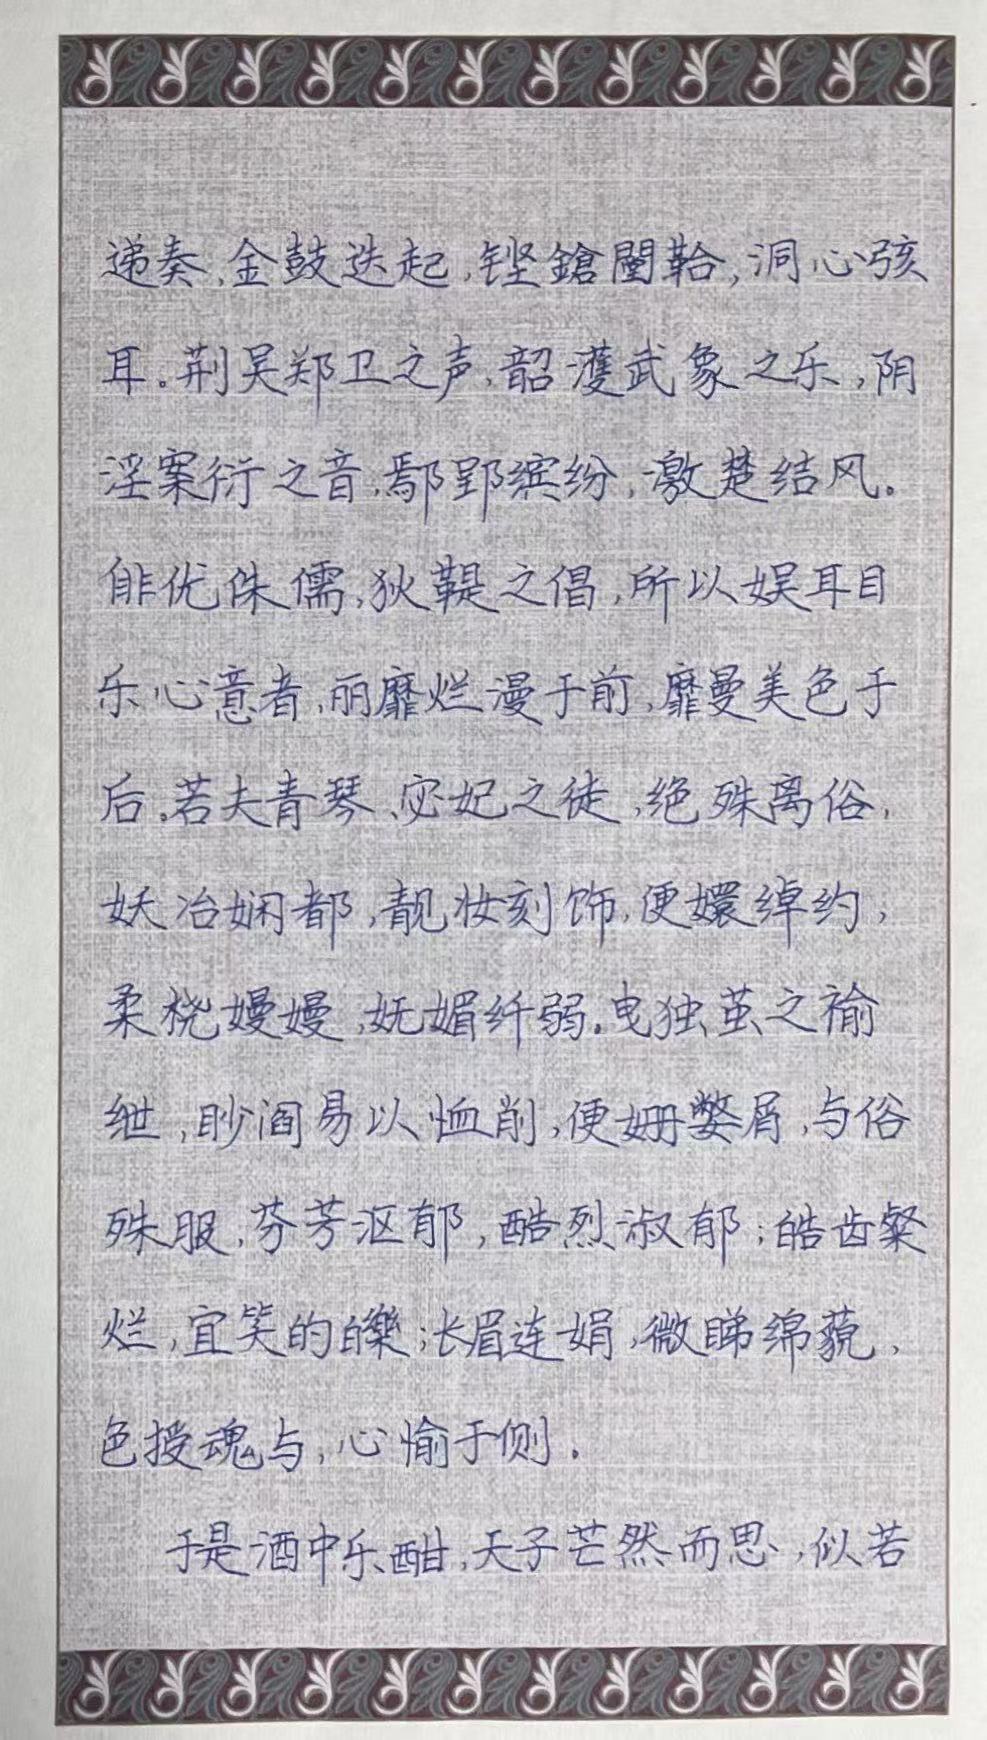 递奏,金鼓迭起,铿鎗闛鞈,洞心骇
耳。荆吴郑卫之声,韶濩武象之乐,阴
淫案衍之音,鄢郢缤纷,激楚结风。
俳优侏儒,狄鞮之倡,所以娱耳目
乐心意者,丽靡烂漫于前,靡曼美色于
后。若夫青琴、宓妃之徒,绝殊离俗,
妖冶娴都,靓妆刻饰,便嬛绰约,
柔桡嫚嫚,妩媚纤弱。曳独茧之褕
绁,眇阎易以恤削,便姗嫳屑,与俗
殊服,芬芳沤郁,酷烈淑郁;皓齿粲
烂,宜笑的皪;长眉连娟,微睇绵藐,
色授魂与,心愉于侧。
于是酒中乐酣,天子芒然而思,似若